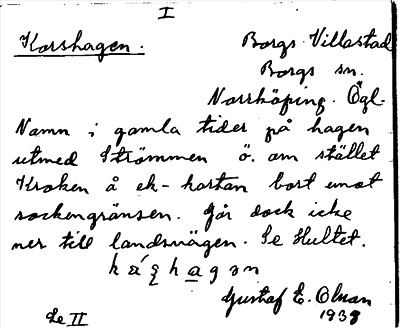 I
Korshagen.
Borgs Villastad
Borgs sn.
Norrköping. Ögl.
Namn i gamla tider på hagen
utmed Strömmen ö. om stället
Kroken å ek-kartan bort emot
sockengränsen. Går dock icke
ner till landsvägen. Se Hultet.
Gustaf E. Olsson
1938
Se II